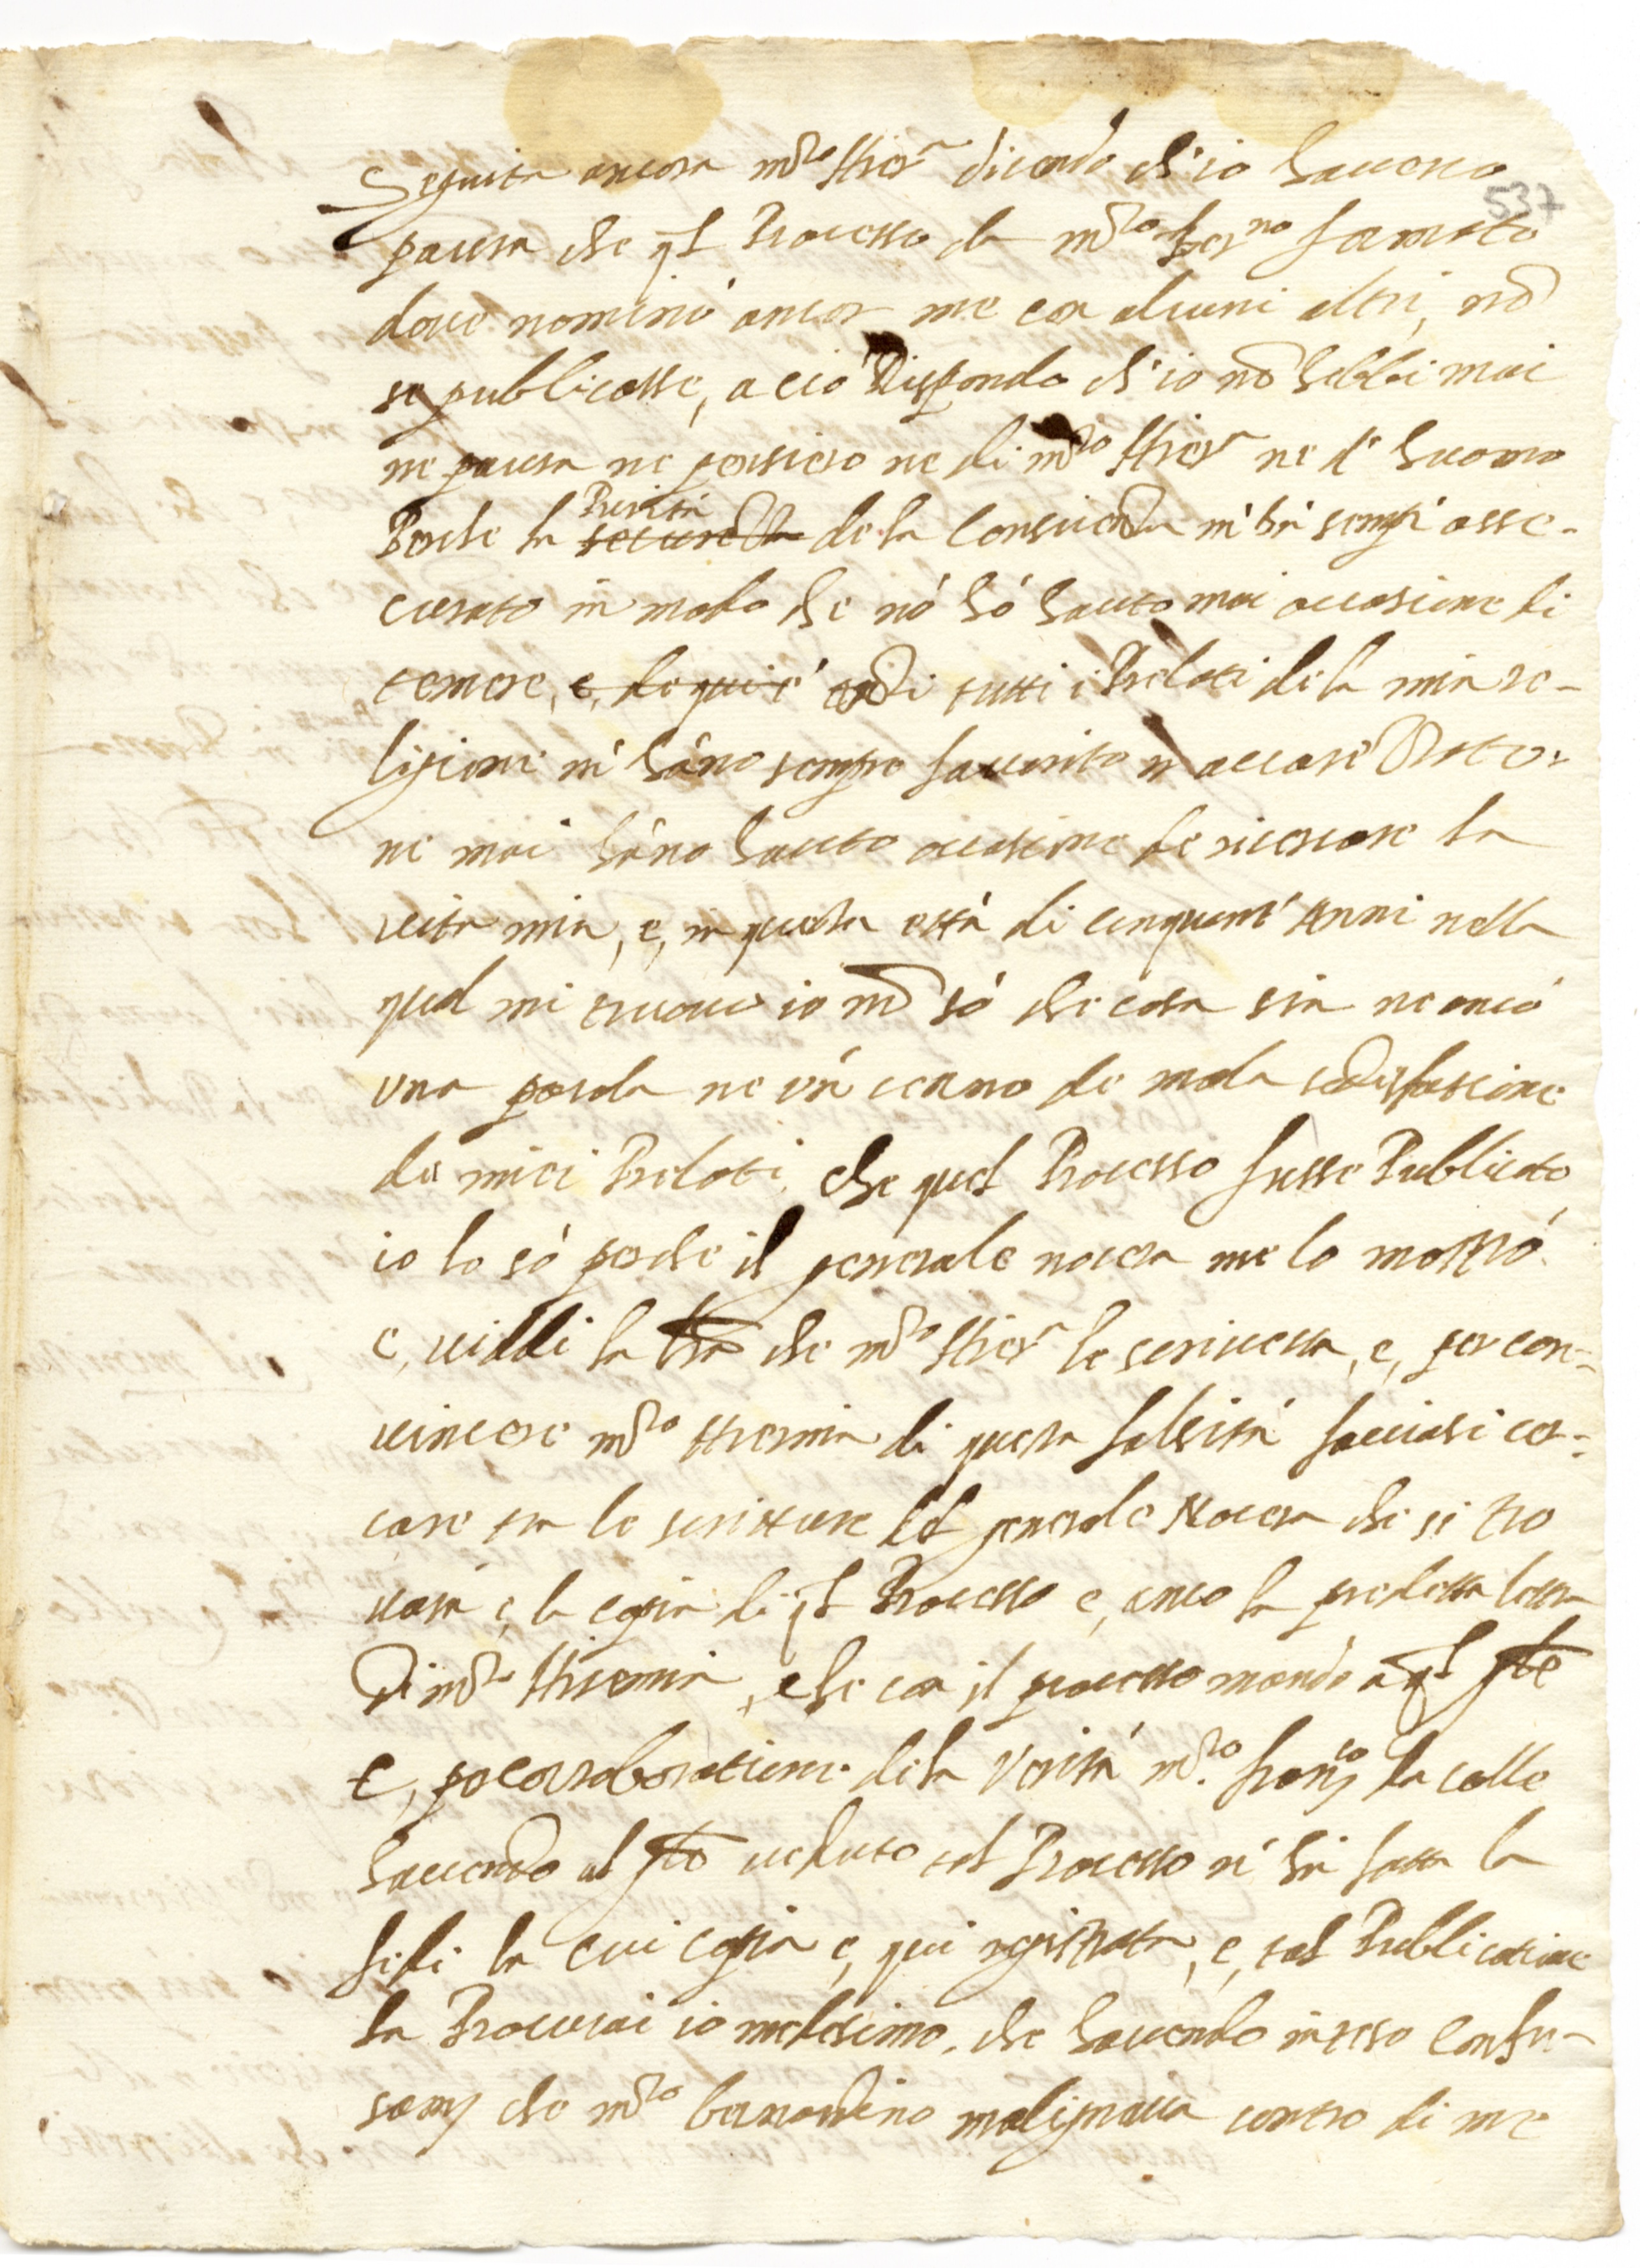 Seguita ancora m.ro Hier.a dicendo ch'io haueuo
537
paura che q.l Processo da m.ro Ber.no formato
doue nominò ancor me con alcuni altri, nõ
se publicasse, a ciò Rispondo ch'io nõ hebbi mai
ne paura ne pensiero ne di m.ro Hier.a ne d'huomo
Perche la Purità de la Conscienza m'hà sempr' asse-
curato in modo che nõ hò hauto mai occasione di
temere, e, da qui é tutti i Prelati de la mia re-
ligione m'hãno sempre fauorito
ne mai hãno hauto occasione de ricercare la
uita mia, e, in questa età di cinquant'Anni nella
qual mi truouo io nõ sò che cosa sia ne ancò
una parola ne un cenno de mala sodisfatione
da miei Prelati, che quel Processo fusse Publicato
io lo sò perche il generale nocera me lo mostrò.
e, uiddi la l̃ra che m.ro Hier.a le scriueua, e, per con-
uincere m.ro Hieremia di questa falsità facciasi cer-
care tra le scritture del generale Nocera che si tro
uarà e, la copia di q.l Processo e, anco la predetta lettera
Di m.ro Hieremia, che con il processo mandò a q.l
E, p corroboratione de la Verità m.ro Fran.co da colle
hauendo al ueduto tal Processo n'hà fatta la
fidi la cui copia e, qui registrata, e, tal Publicatione
la Procurai io medesimo, che hauendo inteso Confu-
sam.e che m.ro bernardino malignaua contro di me